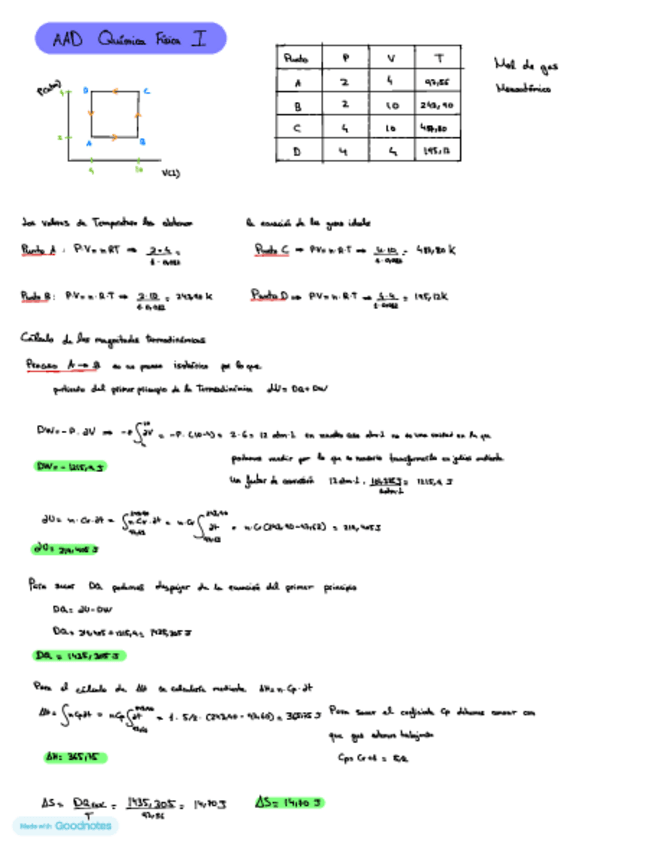 AAD Química Física I
Punto P V T
A 2 4 97,56
B 2 10 243,90
C 4 10 487,80
D 4 4 195,12
Mol de gas
Monoatómico
P(atm)
D C
A B
4 10 V(L)
Los valores de Temperatura los obtenemos la ecuación de los gases ideales
Punto A : P·V = nRT ⇒ 2·4 / 1·0,082 =
Punto C ⇒ PV = n·R·T ⇒ 4·10 / 1·0,082 = 487,80 K
Punto B : P·V = n·R·T ⇒ 2·10 / 1·0,082 = 243,90 K
Punto D ⇒ PV = n·R·T ⇒ 4·4 / 1·0,082 = 195,12 K
Cálculo de las magnitudes termodinámicas
Proceso A → B es un proceso isobárico por lo que
partiendo del primer principio de la Termodinámica dU = DQ + DW
DW = -P·dV ⇒ -P∫dV = -P·(10-4) = 2·6 = 12 atm·L en nuestro caso atm·L no es una unidad en la que
podamos medir por lo que es necesario transformarlo en julios mediante
DW = -1215,9 J
Un factor de conversión 12 atm·L · = 1215,9 J
dU = n·Cv·dt = ∫n·Cv·dt = n·Cv∫dt = n·Cv(243,90-97,56) = 219,405 J
dU = 219,405 J
Para sacar DQ podemos despejar de la ecuación del primer principio
DQ = dU - DW
DQ = 219,405 + 1215,9 = 1435,305 J
DQ = 1435,305 J
Para el cálculo de ΔH se calcularía mediante ΔH = n·Cp·dt
ΔH = ∫nCpdt = nCp∫dt = 1·5/2·(243,90-97,60) = 365,75 J Para sacar el coeficiente Cp debemos conocer con
que gas estamos trabajando
ΔH = 365,75
Cp = Cv + 1 = 5/2
ΔS = DQ / T = 1435,305 / 97,56 = 14,70 J ΔS = 14,70 J
Made with Goodnotes